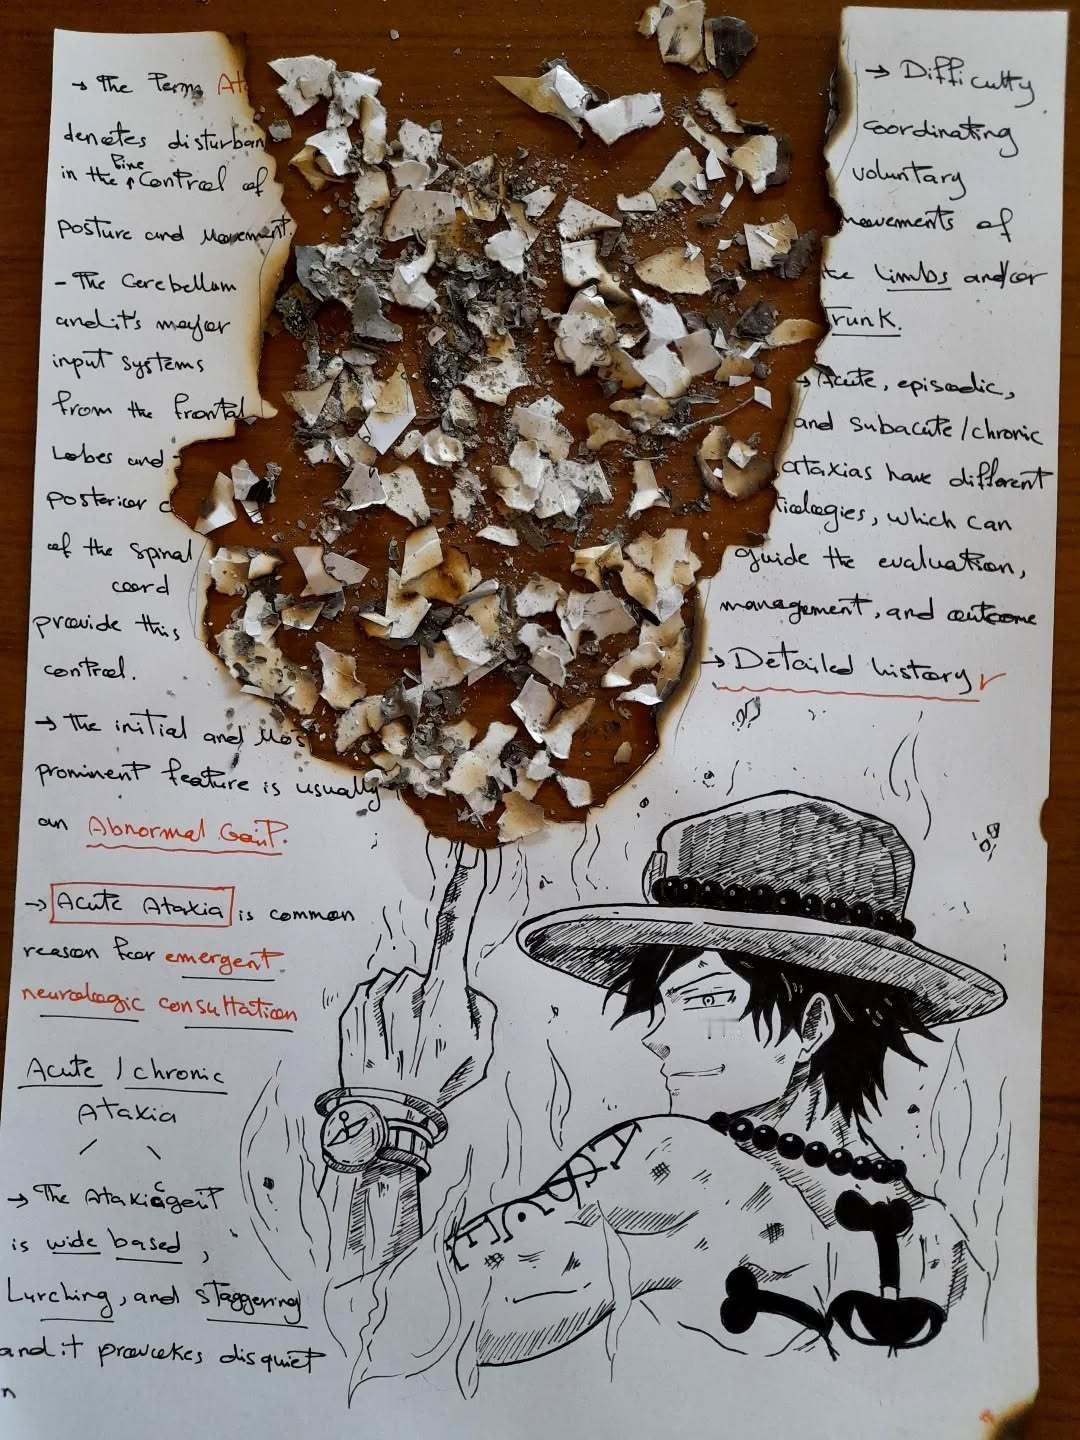 → The Term At
denotes disturban
in the fine control of
posture and Movement.
- The Cerebellum
and it's major
input systems
from the frontal
Lobes and
posterior c
of the spinal
coord
provide this
control.
→ The initial and Mos
prominent feature is usually
an Abnormal Gait.
→ Acute Ataxia is common
reason for emergent
neurologic consultation
Acute / chronic
Ataxia
→ The Ataxic gait
is wide based,
Lurching, and staggering
and it provokes disquiet
n
→ Difficulty
coordinating
voluntary
movements of
he limbs and/or
Trunk.
→ Acute, episodic,
and subacute/chronic
ataxias have different
tiologies, which can
guide the evaluation,
management, and outcome
→ Detailed history